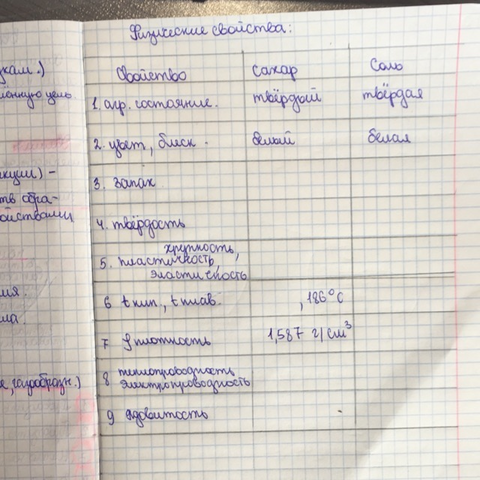 Физические свойства:
Свойство сахар соль
1. агр. состояние. твёрдый твёрдая
2. цвет, блеск. белый белая
3. запах
4. твёрдость
хрупкость,
5. пластичность,
эластичность
6 t кип., t плав. , 186°С
7 ρ плотность 1,587 г/см³
8 теплопроводность
электропроводность
9 ядовитость
кам.)
ённую цель
кции) -
тв обра-
ойствами
ия.
ма.
е, газообразн.)